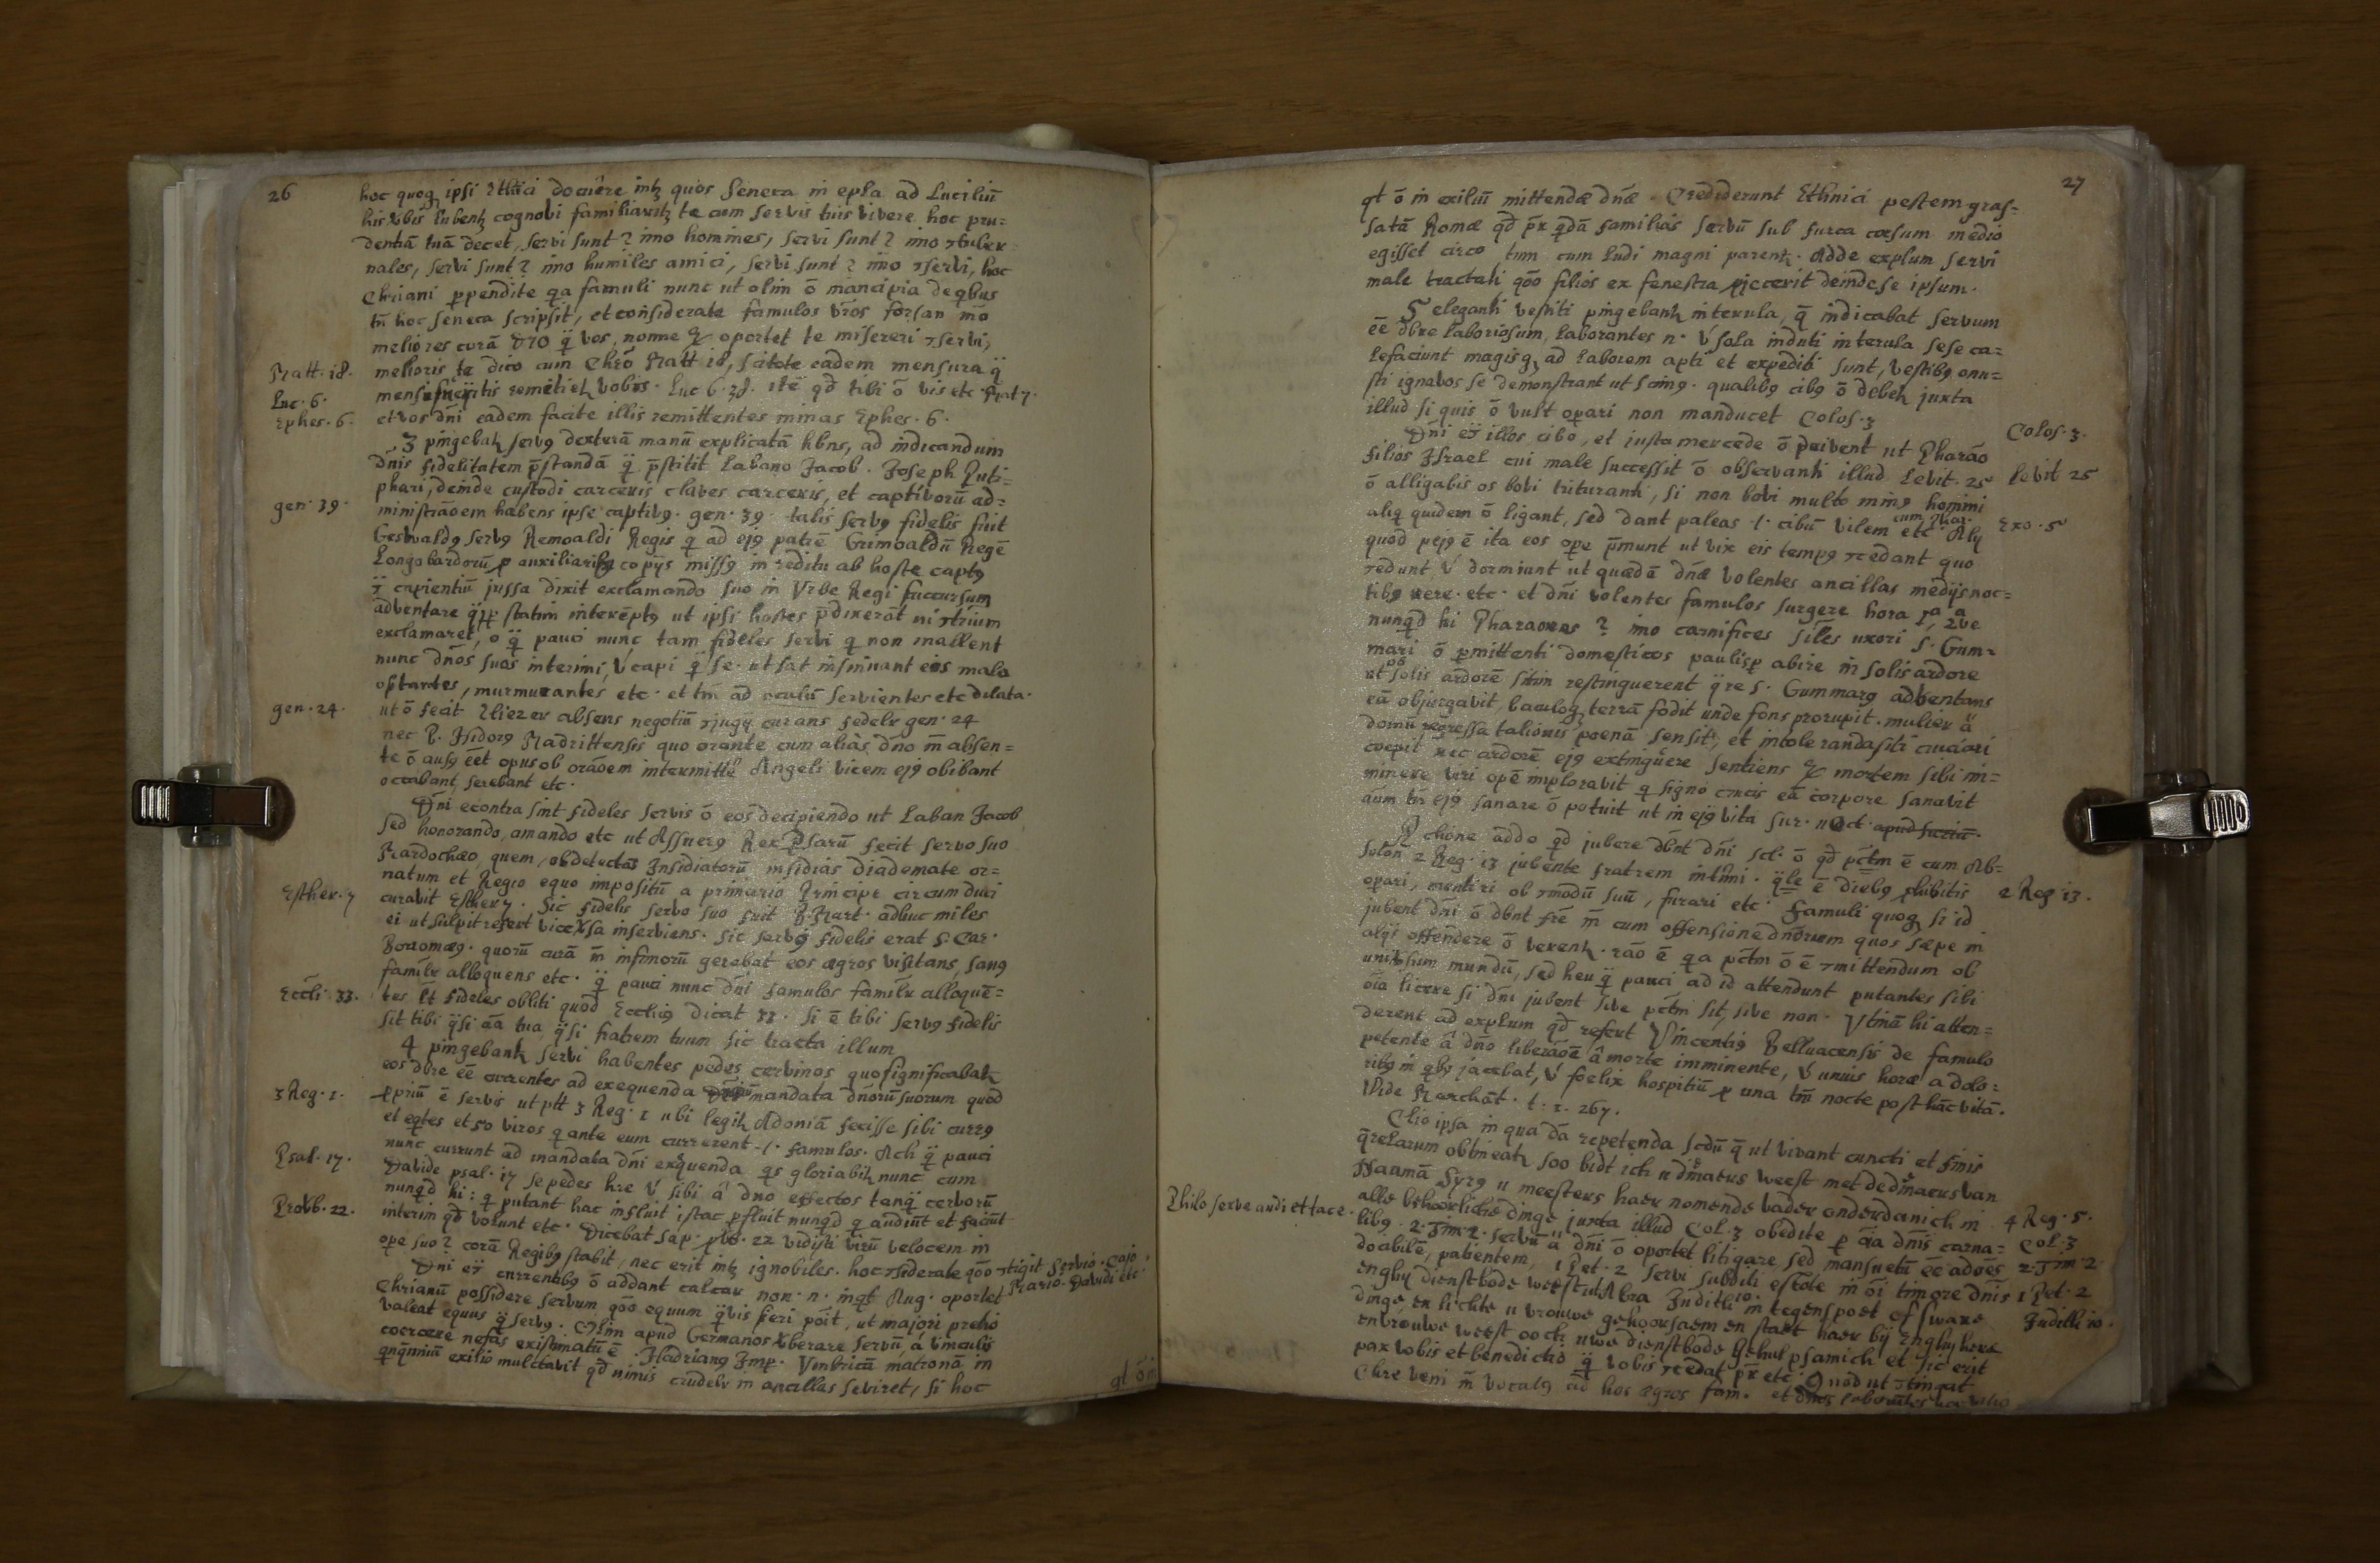 26
hoc quoq ipsi Ethnici docuêre intz quos Seneca in epla ad Luciliū
his vbis lubentz cognovi familiaritz te cum servis tuis vivere hoc pru=
dentiā tuā decet, servi sunt? imo homines, servi sunt? imo ꝯtuber=
nales, servi sunt? imo humiles amici, servi sunt? imo ꝯservi, hoc
Chriani ppendite qa famuli nunc ut olim ō mancipia de qbus
tn hoc Seneca scripsit, et considerate famulos vros forsan
meliores corā DEO q̄ vos, nonne oportet te misereri ꝯservi,
Matt. 18. melioris te dico cum Chrō Matt 18, scitote eadem mensura q̄
Luc. 6. mensi fueritis remetietz vobis. Luc 6. 38. itē qd tibi ō vis etc Mat 7.
Ephes. 6. et vos dni eadem facite illis remittentes minas Ephes. 6.
3 pingebatz servq dexterā manū explicatā hbns, ad indicandum
dnis fidelitatem p̄standā q̄ p̄stitit Labano Jacob. Joseph Puti=
phari, deinde custodi carceris claves carceris, et captivorū ad=
gen. 39. ministrāoem habens ipse captivq. gen. 39. talis servq fidelis fuit
Gesvaldq servq Remoaldi Regis q ad ejq patrē Grimoaldū Regē
Longobardorū p auxiliaribq copijs missq in reditu ab hoste captq
capientiū jussa dixit exclamando suo in Urbe Regi succursum
adventare statim interēptq ut ipsi hostes p̄dixerāt ni ꝯtrium
exclamaret, o q̄ pauci nunc tam fideles servi q non mallent
nunc dnos suos interimi, v capi q̄ se. ut sat insinuant eis mala
optantes, murmurantes etc. et tm ad oculū servientes etc dilata.
gen. 24. ut ō fecit Eliezer absens negotiū ꝯjugij curans fidelr gen. 24
nec B. Isidorq Madrittensis quo orante cum aliàs dno m̄ absen=
te ō ausq eet opus ob orāoem intermittē Angeli vicem ejq obibant
occabant, serebant etc.
Dni econtra sint fideles servis ō eos decipiendo ut Laban Jacob
sed honorando, amando etc ut Assuerq Rex Psarū fecit servo suo
Mardochæo, quem, ob detectas Insidiatorū insidias diademate or=
natum et Regio equo impositū a primario Principe circumduci
Esther. 7 curavit Esther 7. Sic fidelis servo suo fuit B. Mart. adhuc miles
ei ut Sulpit refert vice vsa inserviens. sic servq fidelis erat S. Car.
Borromæq. quorū curā m̄ infimorū gerebat eos ægros visitans, sanq
familr alloquens etc. q̄ pauci nunc dni famulos familr alloquē=
Eccli. 33. tes et fideles obliti quod Eccliq dicat 33. Si ē tibi servq fidelis
sit tibi q̄si aa tua, q̄si fratrem tuum sic tracta illum
4 pingebantz servi habentes pedes cervinos quo significabatz
eos dbre eē currentes ad exequenda mandata dnorū suorum quod
3 Reg. 1. ꝓpriū ē servis ut ptt 3 Reg. 1 ubi legitz Adoniā fecisse sibi currq
et eqtes et 50 viros q ante eum currerent .i. famulos. Ach q̄ pauci
nunc currunt ad mandata dni exequenda qs gloriabitz nunc cum
Psal. 17. Davide psal. 17 se pedes hre v sibi â dno effectos tanq̄ cervorū
nunqd hi: q putant hac influit istac pfluit nunqd q audiūt et faciūt
Provb. 22. interim qd volunt etc. Dicebat Sap. prov. 22 vidisti virū velocem in
ope suo? corā Regibq stabit, nec erit intz ignobiles. hoc ꝯsiderate qōo ꝯtigit Servio. Cajo.
Mario. Davidi etc.
Dni et currentibq ō addant calcar non. n. inqt Aug. oportet
Chrianū possidere servum qōo equum q̄vis fieri pōit, ut majori pretio
valeat equus q̄ servq. Olim apud Germanos vberare servū, â vinculis
coercere nefas existimatū ē. Hadrianq Imp. Umbricā matronā in
qnqnniū exilio mulctavit qd nimis crudelr in ancillas seviret, si hoc
qt ō in
27
qt ō in exiliū mittendæ dnæ. Crediderunt Ethnici pestem gras=
satā Romæ qd pr qdā familias servū sub furca cæsum medio
egisset circo tum cum ludi magni parentz. Adde explum servi
male tractati qōo filios ex fenestra pjecerit deinde se ipsum.
5 eleganti vestiti pingebantz interula, q̄ indicabat servum
eē dbre laboriosum, laborantes n. v sola induti interula sese ca=
lefaciunt magisq ad laborem apti et expediti sunt, vestibq onu=
sti ignavos se demonstrant ut scimq. qualibq cibq ō debetz juxta
illud si quis ō vult opari non manducet Colos. 3
Colos. 3.
Dni et illos cibo, et justa mercede ō privent ut Pharāo
filios Israel cui male successit ō observanti illud Levit. 25
Levit 25
ō alligabis os bovi trituranti, si non bovi multo minq homini
aliq quidem ō ligant, sed dant paleas .i. cibū vilem cum Phar. etc. Alij
Exo. 5
quod pejq ē ita eos ope p̄munt ut vix eis tempq ꝯcedant quo
redunt v dormiunt ut quædā dnæ volentes ancillas medijs noc=
tibq nere. etc. et dni volentes famulos surgere hora 1a, 2a ve
nunqd hi Pharaones? imo carnifices siles uxori S. Gum=
mari ō pmittenti domesticos paulisp abire in solis ardore
ut ob solis ardorē sitim restinguerent q̄ re S. Gummarq adventans
eā objurgavit, baculoq terrā fodit unde fons prorupit. mulier
domū regressa talionis pœnā sensit, et intoleranda siti cruciari
coepit nec ardorē ejq extinguere sentiens mortem sibi im=
minere viri opē imploravit q signo crucis eā corpore sanavit
aūm tn ejq sanare ō potuit ut in ejq vita Sur. 11 Oct. apud Surium.
addo qd jubere dbnt dni scl. ō qd pctm ē cum Ab=
solon 2 Reg. 13 jubente fratrem intimi. q̄le ē diebq phibitis
2 Reg 13.
opari, mentiri ob ꝯmodū suū, furari etc. Famuli quoq si id
jubent dni ō dbnt fre m̄ cum offensione dnorum quos sæpe in
alijs offendere ō verentz. rāo ē qa pctm ō ē ꝯmittendum ob
univsum mundū, sed heu q̄ pauci ad id attendunt putantes sibi
oia licere si dni jubent sive pctm sit, sive non. Utinā hi atten=
derent ad explum qd refert Vincentiq Belluacensis de famulo
petente â dno liberāoē â morte imminente, v unius horæ a dolo=
ribq in qbq jacebat, v foelix hospitiū p una tm nocte post hāc vitā.
Vide Marchāt. t. 1. 267.
Clio ipsa in qua da repetenda scdū q̄ ut vivant cuncti et finis
q̄relarum obtineatz soo bidt ich u dinaers weest met de dinaers van
Naamā Syrq u meesters haer nomende vader onderdanich in
4 Reg. 5.
Philo serve audi et tace. alle behoorlicke dingē juxta illud Col. 3 obedite p oia dnis carna=
Col. 3
libq. 2. Tim 2. servū dni ō oportet litigare, sed mansuetū eē ad oēs
2. Tim. 2
docibilē, patientem, 1 Pet. 2 servi subditi estote in oi timore dnis
1 Pet. 2
enghij dienstbode weest ut Abra Judith 10. in tegenspoet of sware
Judith 10.
dinge, en lichte u vrouwe gehoorsaem en staet haer bij Enghij here
en vrouwe weest oock uwe dienstbode behulpsamich et sic erit
pax vobis et benedictio q̄ vobis ꝯcedat pr etc. Quod ut ꝯtingat
Chre veni m̄ vocatq ad hos ægros fam. et dnos